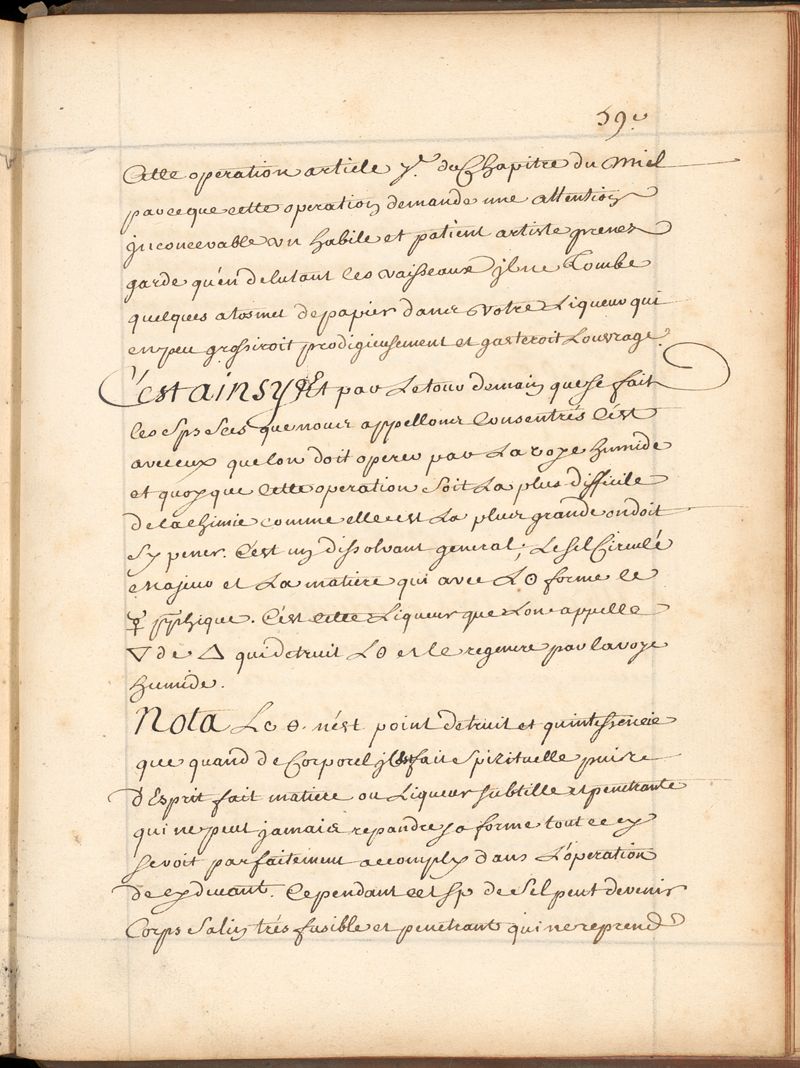 59.e
Cette operation article 7.e du Chapitre du Miel
parceque cette operation demande une attention
jnconcevable un habile et patient artiste prenez
garde qu'en delutant les vaisseaux jl ne Tombe
quelques atosmes de papier dans votre Liqueur qui
en peu grossiroit prodigieusement et gasteroit Louvrage.
C'est ainsy Et par Le tour demain que se fait
les Sps Sels que nous appellons Consentrés C'est
avec eux que lon doit operer par La voye humide
et quoyque Cette operation soit La plus difficile
de la chimie comme elle est La plus grande on doit
sy pener. C'est un dissolvant general; Le sel Circulé
Majeur et La matiere qui avec L🜚 forme le
☿ phique. C'est cette Liqueur que Lon appelle
🜄 de 🜂 qui detruit L🜚 et le regenere par la voye
humide.
Nota Le 🜚. n'est point detruit et quintessencié
que quand de Corporel jl est fait Spirituelle puis re
d'Esprit fait matiere ou Liqueur subtille et penetrante
qui ne peut jamais repandre sa forme tout ce cy
se voit parfaitement accomply dans L'operation
de cy devant. Cependant cet sp de Sel peut devenir
Corps Salin trés fusible et penetrant qui ne reprend